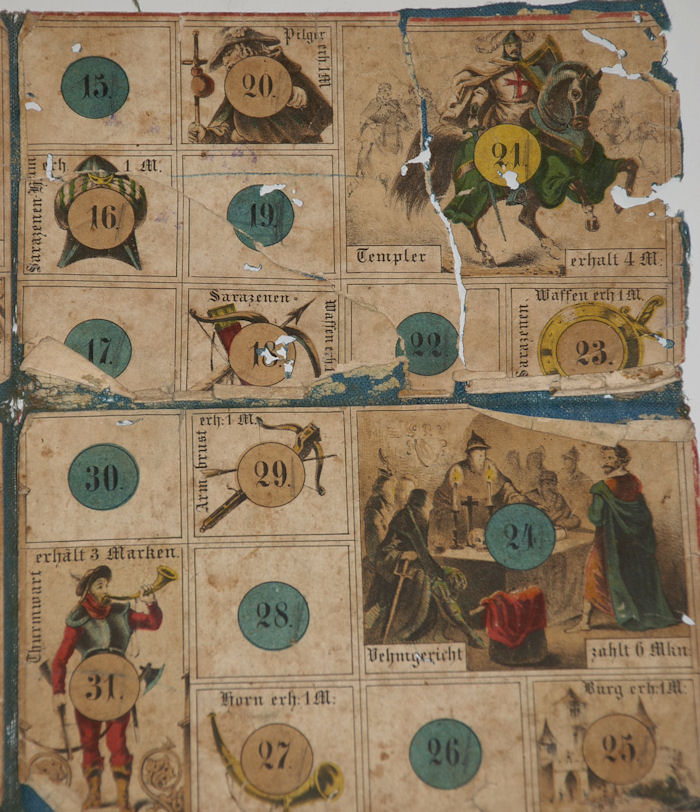 15.
20.
Pilger erh 1 M
21.
Templer
erhält 4 M.
Sarazenen-H
erh 1 M.
16.
19.
17.
Sarazenen-
Waffen erh 1
18.
22.
Sarazenen.
Waffen erh 1 M.
23.
30.
Armbrust
erh: 1 M.
29.
24.
Vehmgericht
zahlt 6 Mkn.
erhält 3 Marken.
Thurmwart
31.
28.
Horn erh: 1 M:
27.
26.
Burg erh: 1 M:
25.